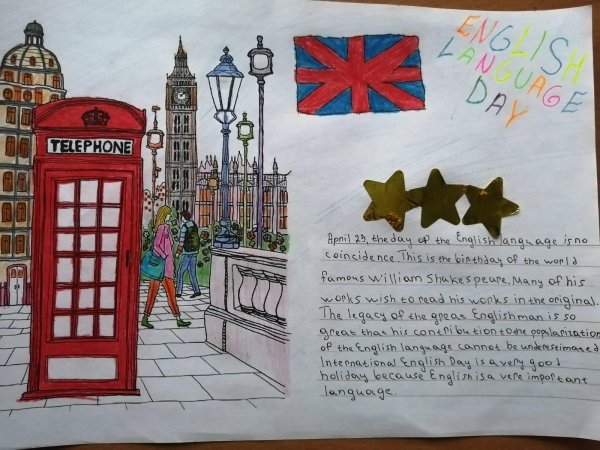 TELEPHONE
ENGLISH
LANGUAGE
DAY
April 23, the day of the English language is no
coincidence. This is the birthday of the world
famous William Shakespeare. Many of his
works wish to read his works in the original.
The legacy of the great Englishman is so
great that his contribution to the popularization
of the English language cannot be underestimated
International English Day is a very good
holiday because English is a vere important
language.